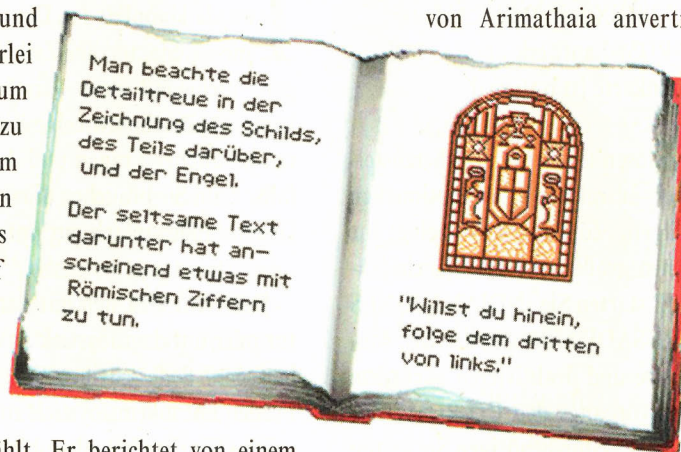 und
rlei
um
zu
m
n
s
f
von Arimathaia anvert
Man beachte die
Detailtreue in der
Zeichnung des Schilds,
des Teils darüber,
und der Engel.
Der seltsame Text
darunter hat an-
scheinend etwas mit
Römischen Ziffern
zu tun.
"Willst du hinein,
folge dem dritten
von links."
ählt. Er berichtet von einem